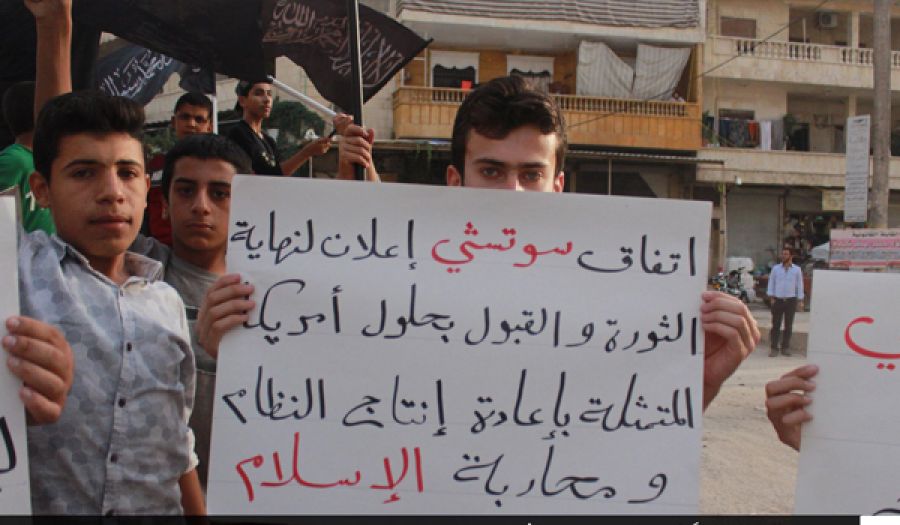 اتفاق سوتشي إعلان لنهاية
الثورة والقبول بحلول أمريكا
المتمثلة بإعادة إنتاج النظام
ومحاربة الإسلام